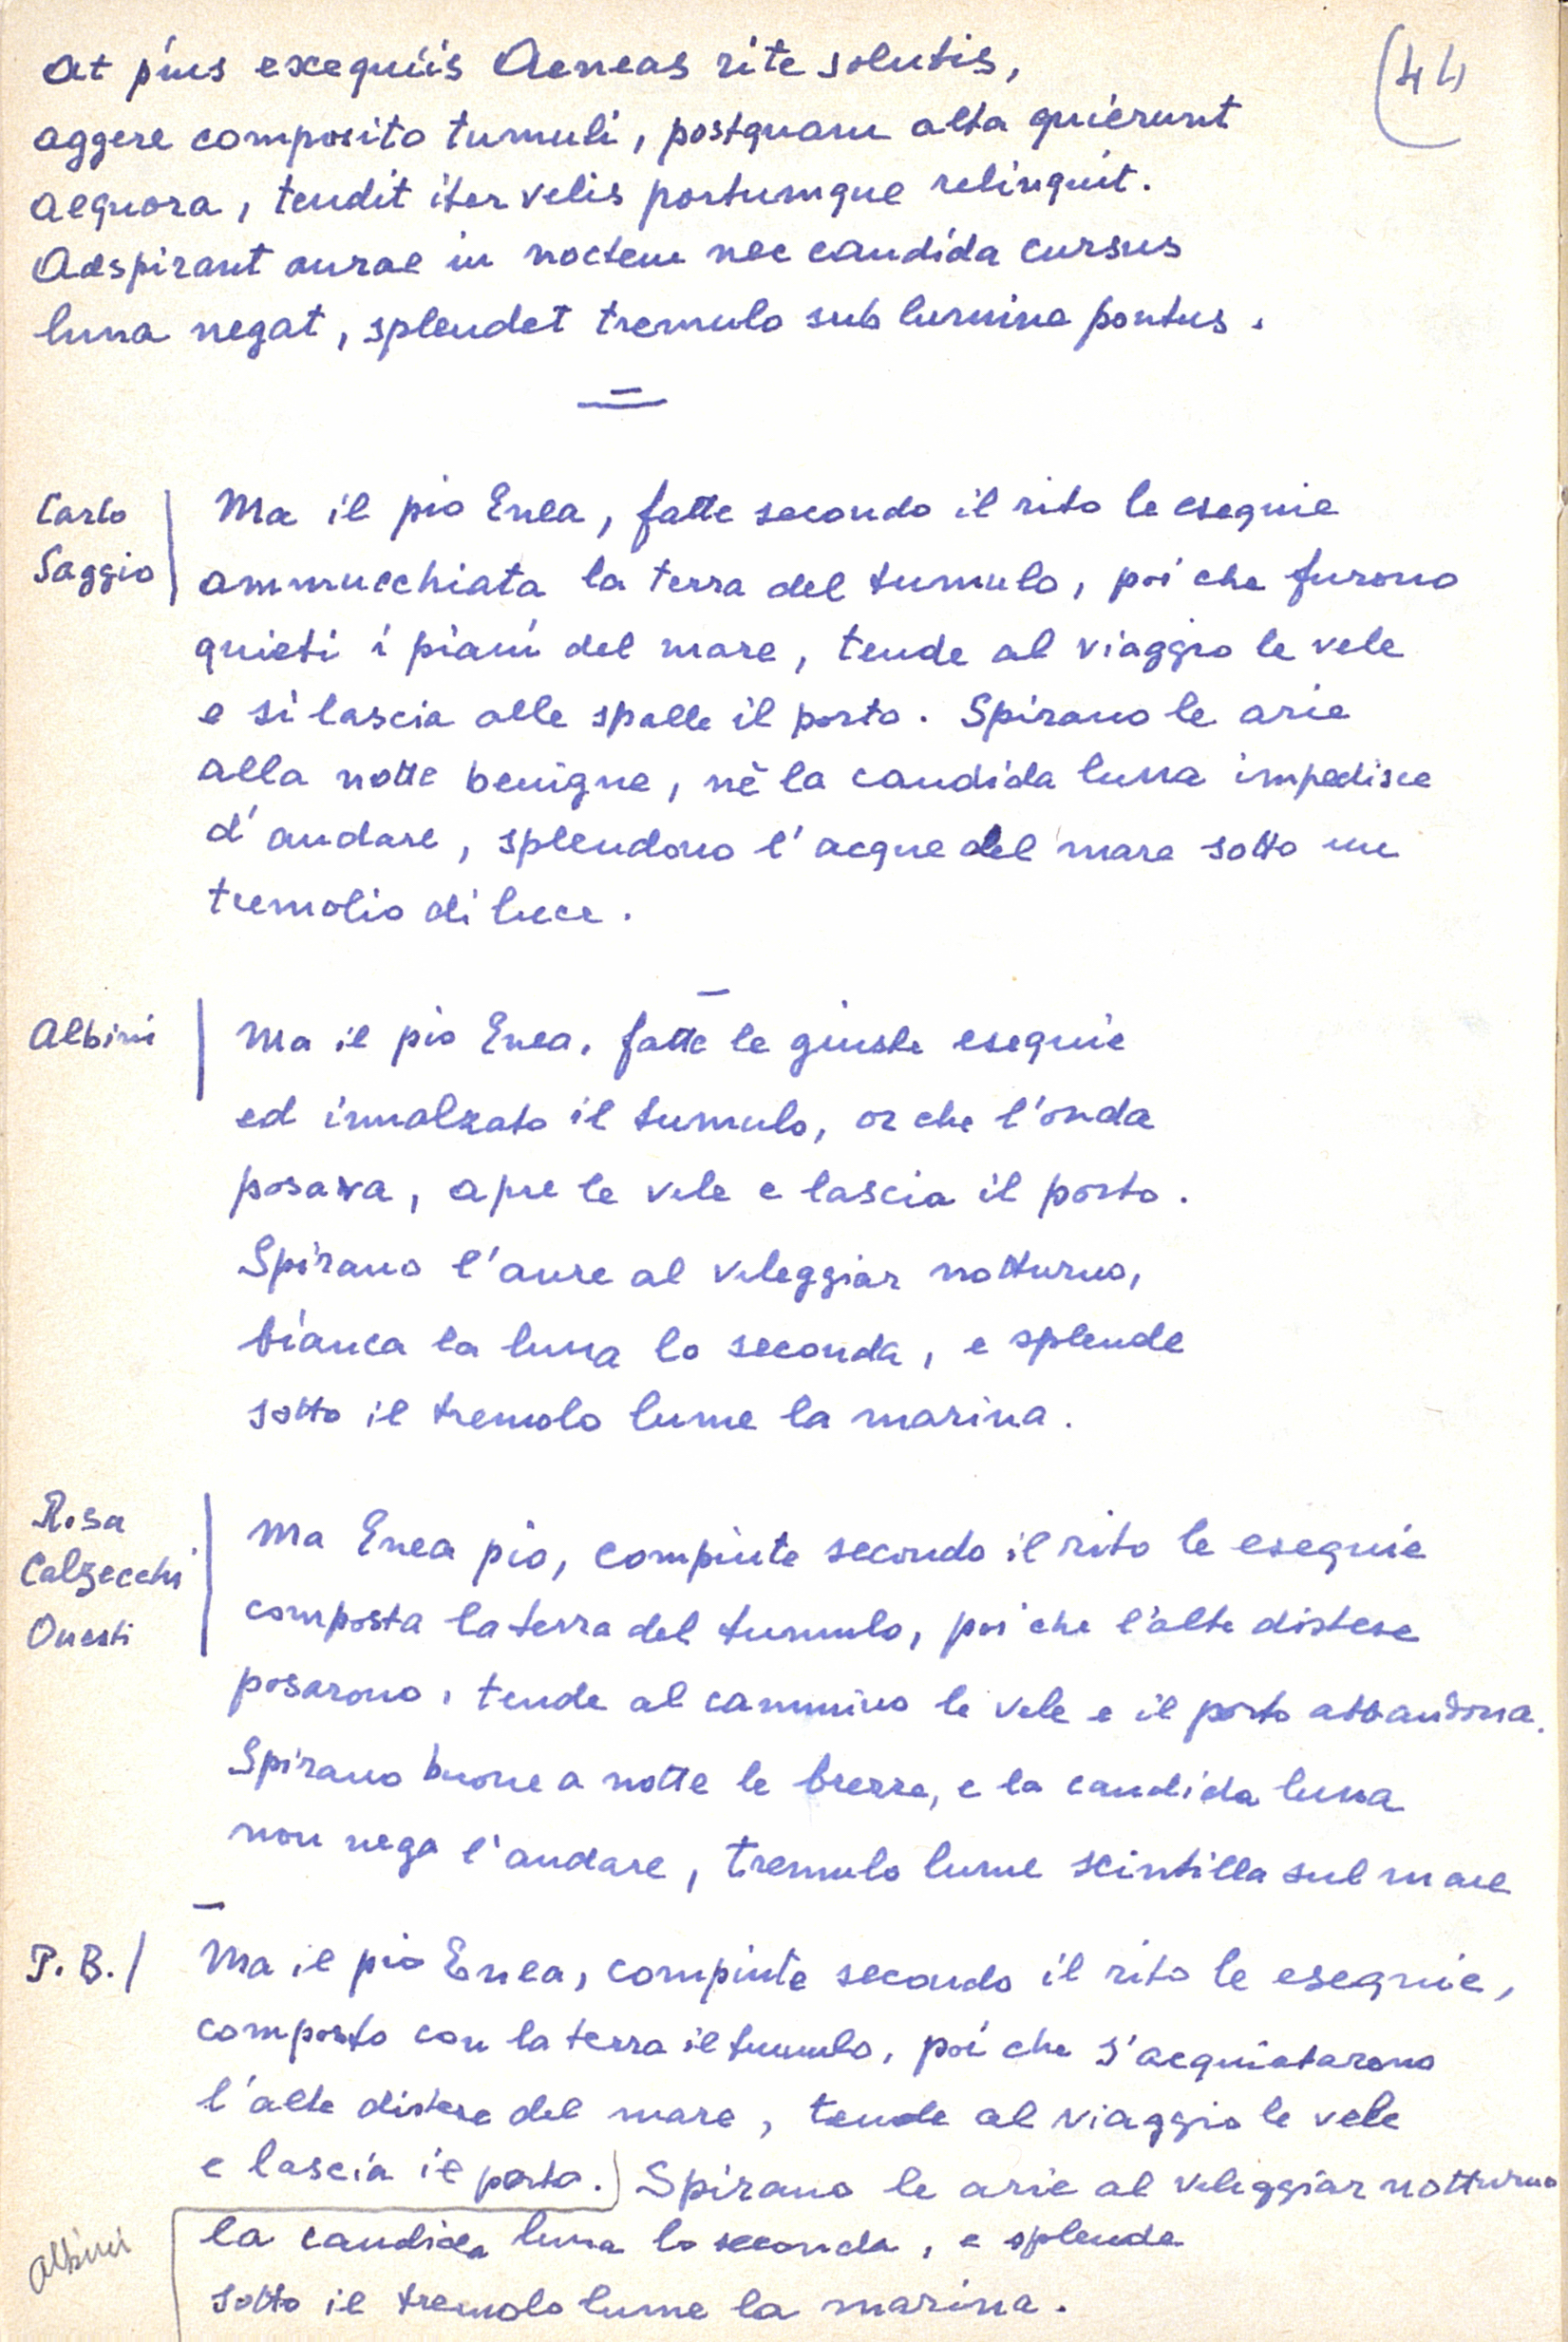 (44
At pius exequiis Aeneas rite solutis,
aggere composito tumuli, postquam alta quierunt
aequora, tendit iter velis portumque relinquit.
Adspirant aurae in noctem nec candida cursus
luna negat, splendet tremulo sub lumine pontus.
Carlo
Saggio
Ma il pio Enea, fatte secondo il rito le esequie
ammucchiata la terra del tumulo, poi che furono
quieti i piani del mare, tende al viaggio le vele
e si lascia alle spalle il porto. Spirano le arie
alla notte benigne, nè la candida luna impedisce
d'andare, splendono l'acque del mare sotto un
tremolio di luce.
Albini
Ma il pio Enea, fatte le giuste esequie
ed innalzato il tumulo, or che l'onda
posava, apre le vele e lascia il porto.
Spirano l'aure al veleggiar notturno,
bianca la luna lo seconda, e splende
sotto il tremolo lume la marina.
Rosa
Calzecchi
Onesti
Ma Enea pio, compiute secondo il rito le esequie
composta la terra del tumulo, poi che l'alte distese
posarono, tende al cammino le vele e il porto abbandona.
Spirano buone a notte le brezze, e la candida luna
non nega l'andare, tremulo lume scintilla sul mare
P.B./
Ma il pio Enea, compiute secondo il rito le esequie,
composto con la terra il tumulo, poi che s'acquietarono
l'alte distese del mare, tende al viaggio le vele
e lascia il porto.) Spirano le arie al veleggiar notturno
Albini
la candida luna lo seconda, e splende
sotto il tremolo lume la marina.